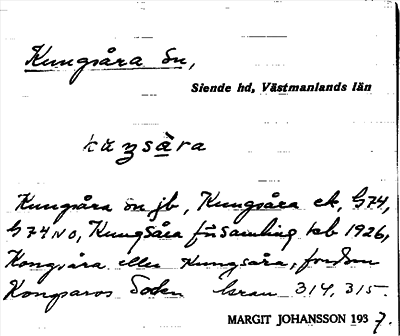 Kungsåra sn,
Siende hd, Västmanlands län
kuŋsàra
Kungsåra sn jb, Kungsåra ek, G74,
G74NO, Kungsåra församling tab 1926,
Kongsåra eller Kungsåra, fordom
Kongsaros Soken Grau 314, 315.
MARGIT JOHANSSON 1937.